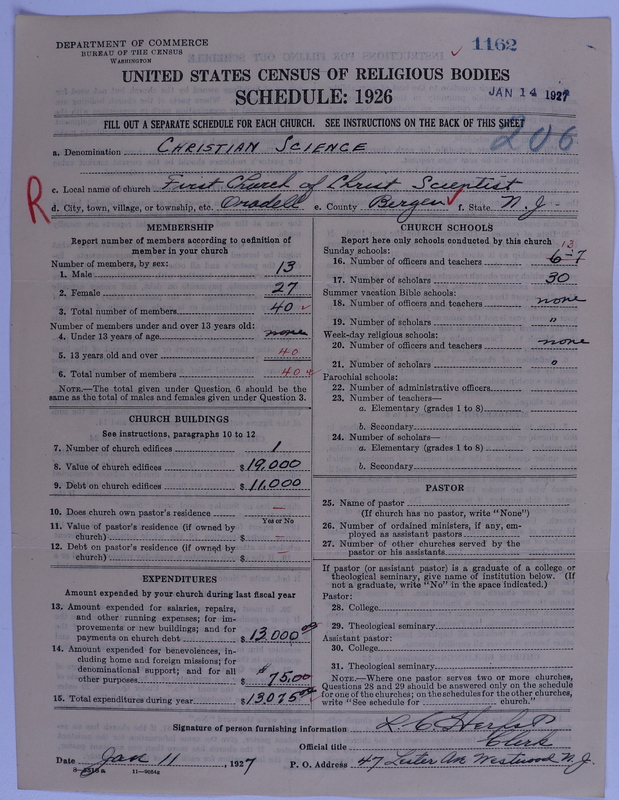 DEPARTMENT OF COMMERCE
BUREAU OF THE CENSUS
WASHINGTON
1162
UNITED STATES CENSUS OF RELIGIOUS BODIES
SCHEDULE: 1926
JAN 14 1927
FILL OUT A SEPARATE SCHEDULE FOR EACH CHURCH. SEE INSTRUCTIONS ON THE BACK OF THIS SHEET
206
a. Denomination CHRISTIAN SCIENCE
c. Local name of church First Church of Christ Scientist
R
d. City, town, village, or township, etc. Oradell e. County Bergen f. State N.J.
MEMBERSHIP
Report number of members according to definition of
member in your church
Number of members, by sex:
1. Male 13
2. Female 27
3. Total number of members 40
Number of members under and over 13 years old:
4. Under 13 years of age none
5. 13 years old and over 40
6. Total number of members 40
NOTE.—The total given under Question 6 should be the
same as the total of males and females given under Question 3.
CHURCH BUILDINGS
See instructions, paragraphs 10 to 12
7. Number of church edifices 1
8. Value of church edifices $19,000
9. Debt on church edifices $11,000
10. Does church own pastor's residence —
Yes or No
11. Value of pastor's residence (if owned by
church) $ —
12. Debt on pastor's residence (if owned by
church) $ —
EXPENDITURES
Amount expended by your church during last fiscal year
13. Amount expended for salaries, repairs,
and other running expenses; for im-
provements or new buildings; and for
payments on church debt $13,000.00
14. Amount expended for benevolences, in-
cluding home and foreign missions; for
denominational support; and for all
other purposes $ $75.00
15. Total expenditures during year $13075.00
CHURCH SCHOOLS
Report here only schools conducted by this church
Sunday schools:
13
16. Number of officers and teachers 6-7
17. Number of scholars 30
Summer vacation Bible schools:
18. Number of officers and teachers none
19. Number of scholars "
Week-day religious schools:
20. Number of officers and teachers none
21. Number of scholars "
Parochial schools:
22. Number of administrative officers
23. Number of teachers—
a. Elementary (grades 1 to 8)
b. Secondary
24. Number of scholars—
a. Elementary (grades 1 to 8)
b. Secondary
PASTOR
25. Name of pastor
(If church has no pastor, write "None")
26. Number of ordained ministers, if any, em-
ployed as assistant pastors
27. Number of other churches served by the
pastor or his assistants
If pastor (or assistant pastor) is a graduate of a college or
theological seminary, give name of institution below. (If
not a graduate, write "No" in the space indicated.)
Pastor:
28. College
29. Theological seminary
Assistant pastor:
30. College
31. Theological seminary
NOTE.—Where one pastor serves two or more churches,
Questions 28 and 29 should be answered only on the schedule
for one of the churches; on the schedules for the other churches,
write "See schedule for church."
Signature of person furnishing information
Official title Clerk
Date Jan 11, 1927 P. O. Address 47 Lester Ave Westwood N.J.
11—9054g